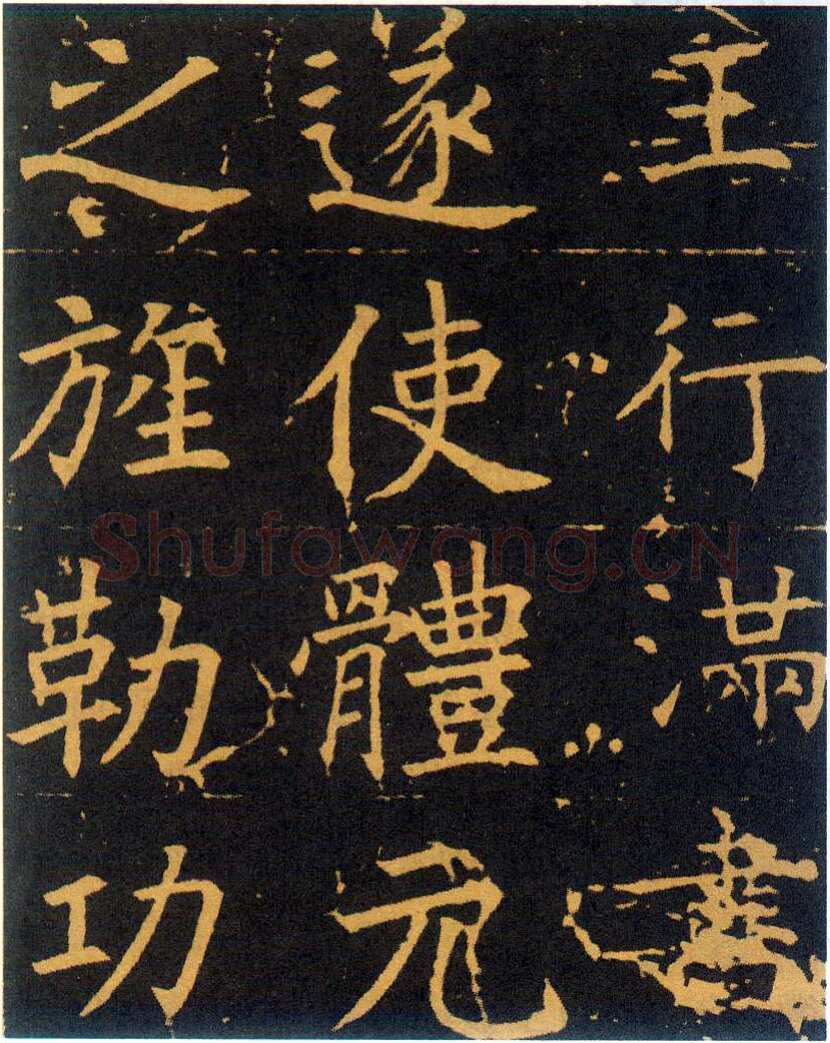 主行滿
遂使體元
之旌勒功
Shufawang.CN